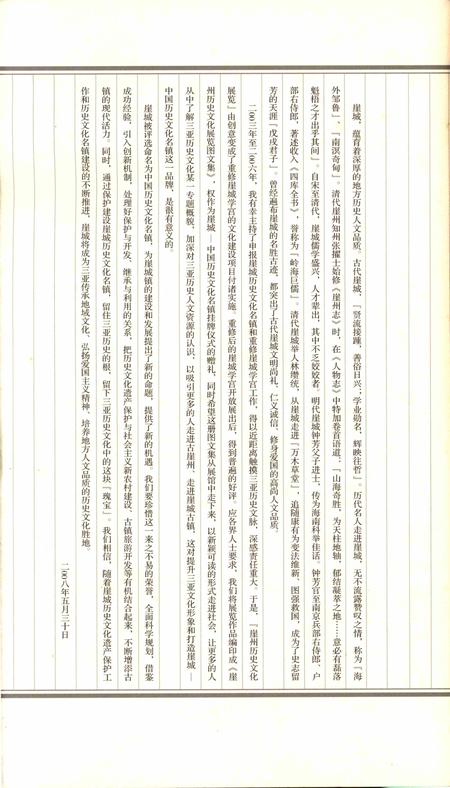 崖城，蕴育着深厚的地方历史人文品质。古代崖城，「贤流接踵，善俗日兴；学业勋名，辉映往哲」。历代名人走进崖城，无不流露赞叹之情，称为「海
外邹鲁」、「南溟奇甸」。清代崖州知州张擢士始修《崖州志》时，在《人物志》中特加卷首语道：「山海奇胜，为天柱地轴，郁结凝萃之地……意必有磊落
魁梧之才出乎其间」。自宋至清代，崖城儒学盛兴，人才辈出，其中不乏姣姣者，明代崖城钟芳父子进士，传为海南科举佳话。钟芳官至南京兵部右侍郎、户
部右侍郎，著述收入《四库全书》，誉称为「岭海巨儒」。清代崖城举人林缵统，从崖城走进「万木草堂」，追随康有为变法维新、图强救国，成为了史志留
芳的天涯「戊戌君子」。曾经遍布崖城的名胜古迹，都突出了古代崖城文明尚礼、仁义诚信、修身爱国的高尚人文品质。
二〇〇三年至二〇〇六年，我有幸主持了申报崖城历史文化名镇和重修崖城学宫工作，得以近距离触摸三亚历史文脉，深感责任重大。于是，「崖州历史文化
展览」由创意变成了重修崖城学宫的文化建设项目付诸实施。重修后的崖城学宫开放展出后，得到普遍的好评。应各界人士要求，我们将展览作品编印成《崖
州历史文化展览图文集》，权作为崖城—中国历史文化名镇挂牌仪式的赠礼，同时希望这册图文集从展馆中走下来，以新颖可读的形式走进社会，让更多的人
从中了解三亚历史文化某一专题概貌，加深对三亚历史人文资源的认识，以吸引更多的人走进古崖州、走进崖城古镇，这对提升三亚文化形象和打造崖城—
中国历史文化名镇这一品牌，是很有意义的。
崖城被评选命名为中国历史文化名镇，为崖城镇的建设和发展提出了新的命题，提供了新的机遇。我们要珍惜这一来之不易的荣誉，全面科学规划，借鉴
成功经验，引入创新机制，处理好保护与开发、继承与利用的关系，把历史文化遗产保护与社会主义新农村建设、古镇旅游开发等有机结合起来，不断增添古
镇的现代活力。同时，通过保护建设崖城历史文化名镇，留住三亚历史的根，留下三亚历史文化中的这块「瑰宝」。我们相信，随着崖城历史文化遗产保护工
作和历史文化名镇建设的不断推进，崖城将成为三亚传承地域文化、弘扬爱国主义精神、培养地方人文品质的历史文化胜地。
二〇〇八年五月三十日